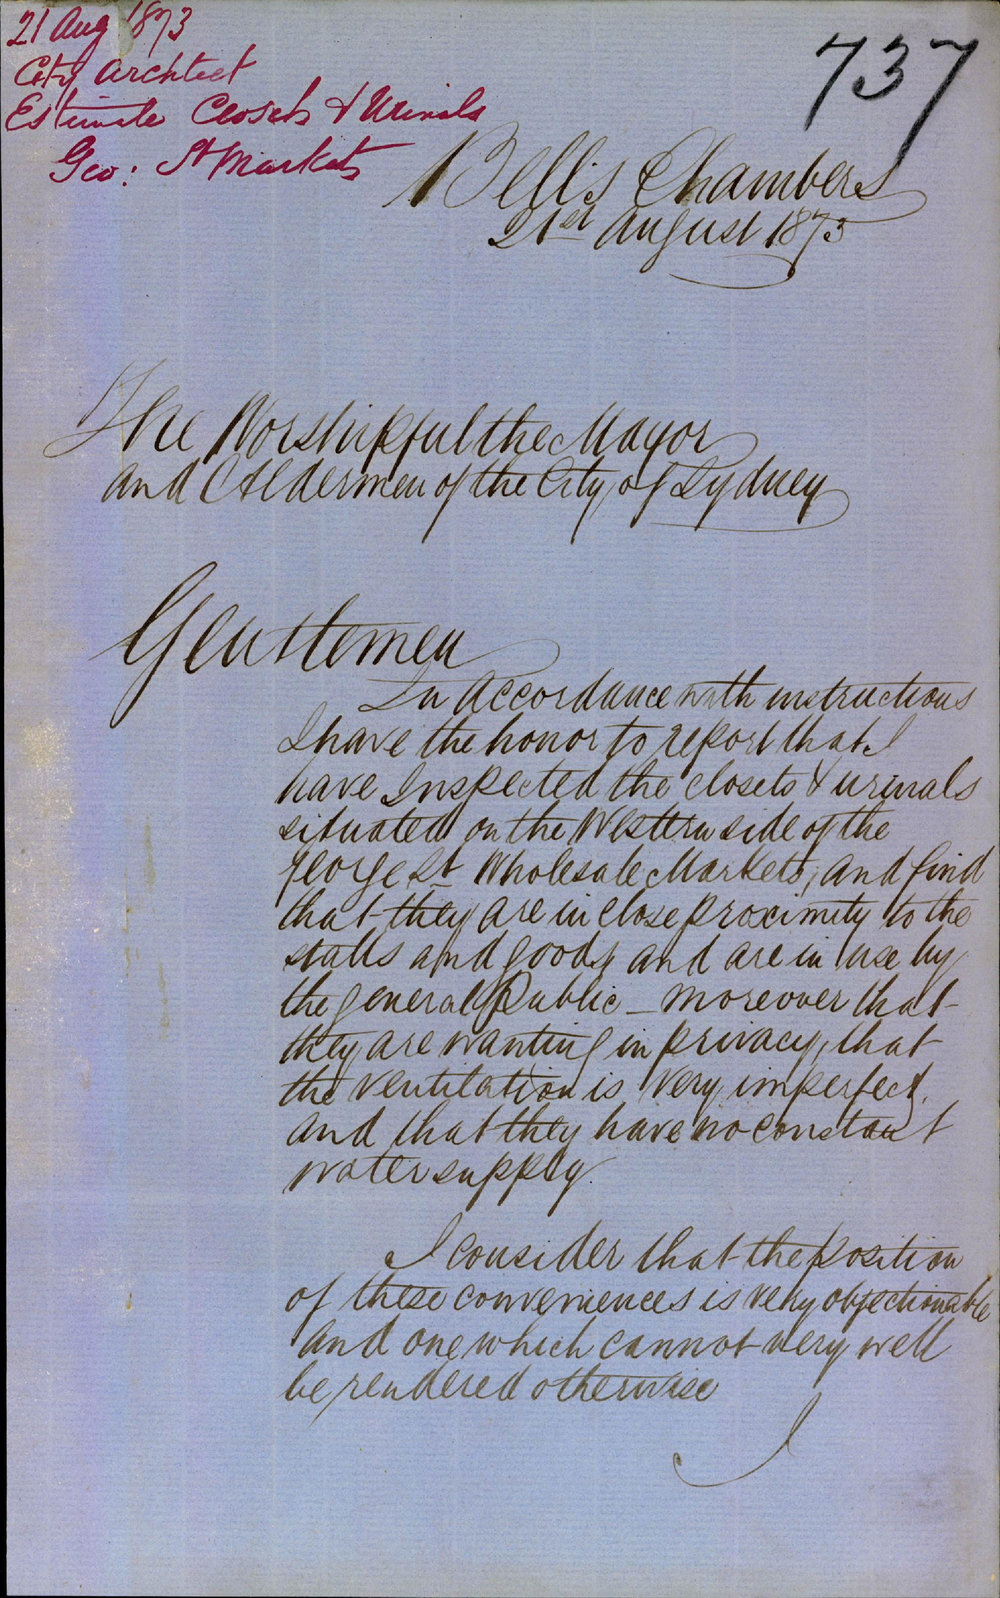 21 Aug 1873
City Architect
Estimate Closets & Urinals
Geo: St Markets
737
Bell's Chambers
21st August 1873
The Worshipful the Mayor
and Aldermen of the City of Sydney
Gentlemen
In accordance with instructions
I have the honor to report that I
have Inspected the closets & urinals
situated on the Western side of the
George St Wholesale Markets, and find
that they are in close proximity to the
stalls and goods, and are in use by
the general Public – moreover that
they are wanting in privacy, that
the ventilation is very imperfect,
and that they have no constant
water supply.
I consider that the position
of these conveniences is very objectionable
and one which cannot very well
be rendered otherwise
I